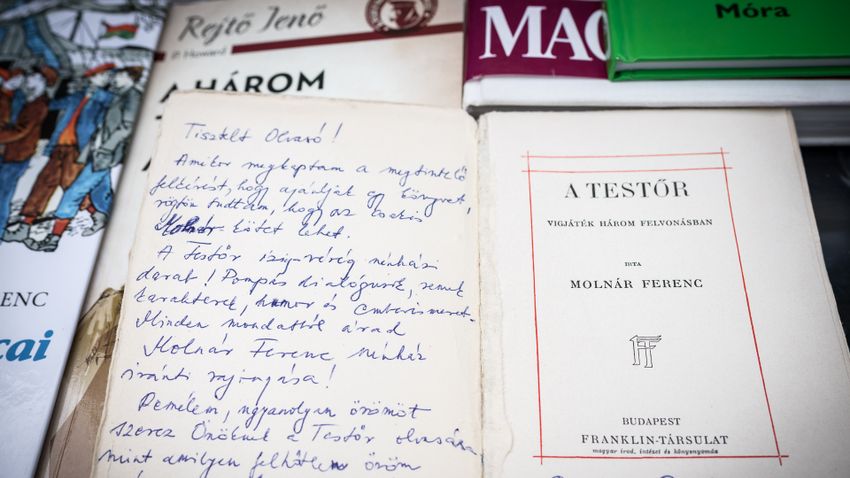 Rejtő Jenő
P. Howard
A HÁROM
MAG
Móra
ENC
cai
Tisztelt Olvasó!
Amikor megkaptam a megtisztelő
felkérést, hogy ajánljak egy könyvet,
rögtön tudtam, hogy az csakis
Molnár kötet lehet.
A Testőr ízig-vérig színházi
darab! Pompás dialógusok, remek
karakterek, humor és emberismeret.
Minden mondatból árad
Molnár Ferenc színház
iránti rajongása!
Remélem, ugyanolyan örömöt
szerez Önöknek a Testőr olvasása
mint amilyen felhőtlen öröm
A TESTŐR
VIGJÁTÉK HÁROM FELVONÁSBAN
IRTA
MOLNÁR FERENC
FT
BUDAPEST
FRANKLIN-TÁRSULAT
magyar irod. intézet és könyvnyomda